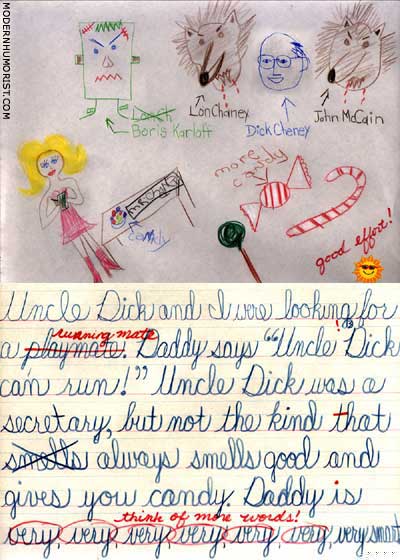 MODERNHUMORIST.COM
Lonch
Boris Karloff
Lon Chaney
Dick Cheney
John McCain
more candy
candy
good effort!
Uncle Dick and I were looking for
running mate
a playmate. Daddy says "Uncle Dick
can run!" Uncle Dick was a
secretary, but not the kind that
smells always smells good and
gives you candy. Daddy is
think of more words!
very, very very very very, very, very smart